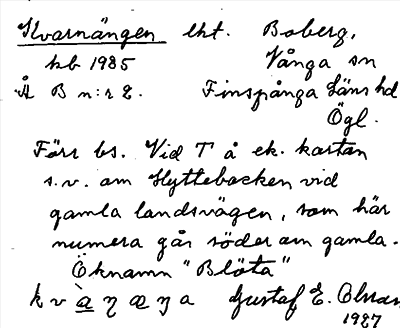 Kvarnängen lht. Boberg,
kb 1985 Vånga sn
Å B n:r 2. Finspånga läns hd
Ögl.
Förr bs. Vid T å ek. kartan
s.v. om Hyttebacken vid
gamla landsvägen, som här
numera går söder om gamla.
Öknamn "Blöta"
kv à ŋ æ ŋ a Gustaf E. Olsson
1927